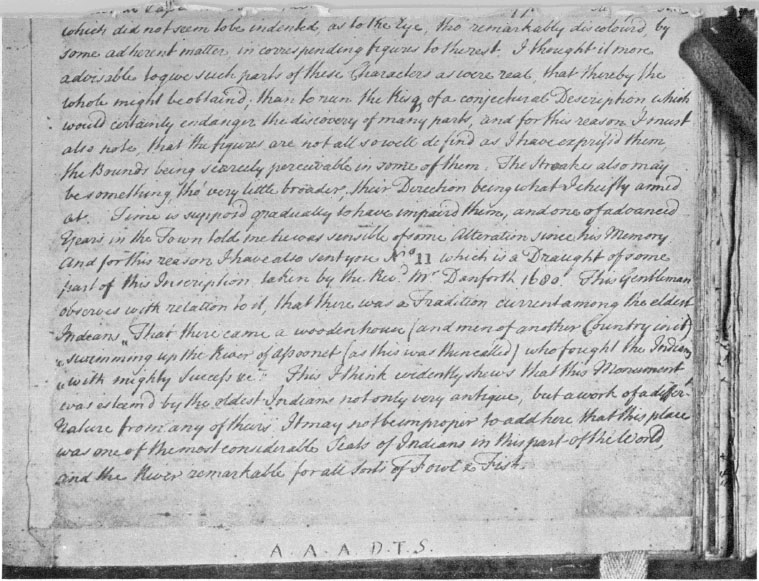 which did not seem to be indented, as to the Eye, tho' remarkably discolour'd by
some adherent matter in corresponding figures to the rest. I thought it more
advisable to give such parts of these Characters as were real, that thereby the
whole might be obtain'd; than to run the Risq, of a conjectural Description, which
would certainly endanger the discovery of many parts, and for this reason I must
also note, that the figures are not all so well defin'd as I have express'd them,
the Bounds being scarcely perceivable in some of them. The Stroaks also may
be something, tho' very little broader, their Direction being what I chiefly aimed
at. Time is suppos'd gradually to have impair'd them, and one of advanced
Years in the Town told me he was sensible of some Alteration since his Memory
And for this reason I have also sent you No. 11 which is a Draught of some
part of this Inscription, taken by the Revd. Mr. Danforth 1680. This Gentleman
observes with relation to it, that there was a Tradition current among the eldest
Indians „That there came a wooden house (and men of another Country in it)
„swimming up the River of Assoonet (as this was then called) who fought the Indians
„with mighty Success &c." This I think evidently shews that this Monument
was esteem'd by the oldest Indians not only very antique, but a work of a differ-
Nature from any of theirs. It may not be improper to add here that this place
was one of the most considerable Seats of Indians in this part of the World,
and the River remarkable for all sorts of Fowl & Fish.
A. A. A. D. T. S.